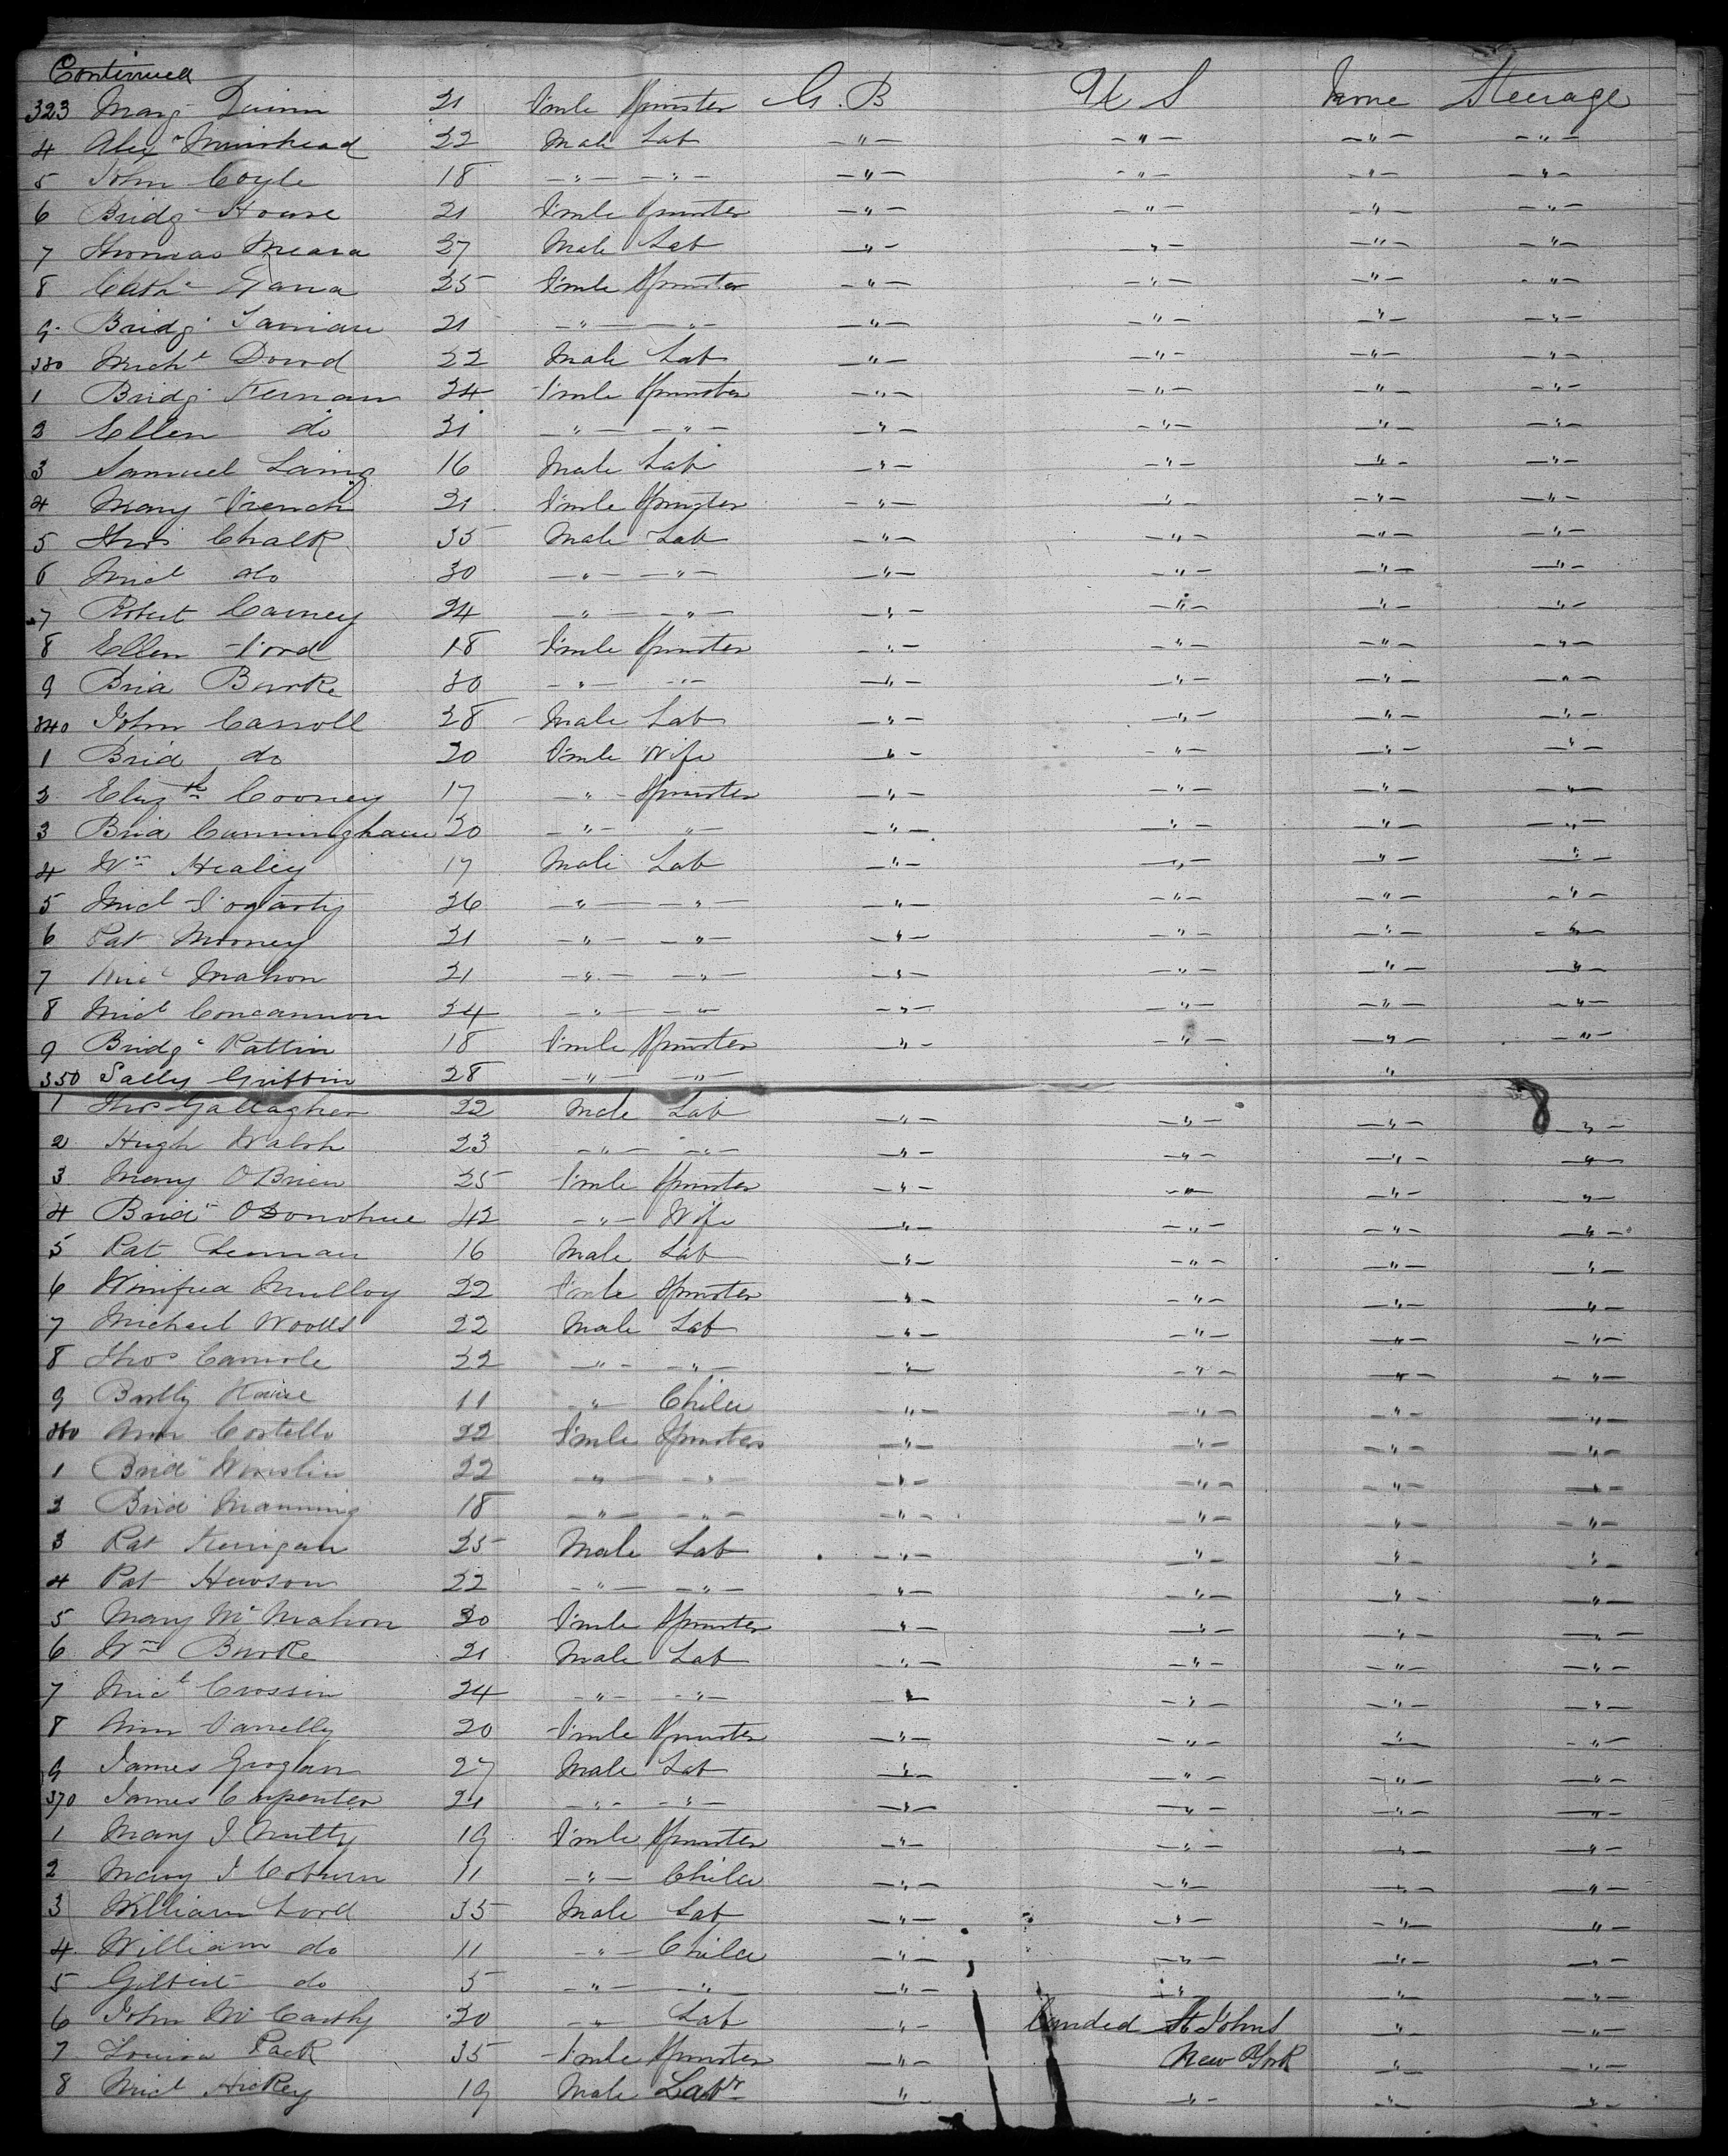 Continued
323 Mary Quinn 21 F'mle Spinster G. B U S None Steerage
4 Alexr Muirhead 22 Male Lab -"- -"- -"- -"-
5 John Coyle 18 -"- -"- -"- -"- -"- -"-
6 Bridg House 21 F'mle Spinster -"- -"- -"- -"-
7 Thomas Meara 37 Male Lab " - " - -"- -"-
8 Cathe 25 F'mle Spinster -"- -"- -"- -"-
9 Bridg 21 -"- -"- -"- -"- -"- -"-
330 Michl Dowd 22 Male Lab -"- -"- -"- -"-
1 Bridg Kernan 24 F'mle Spinster -"- -"- -"- -"-
2 Ellen do 21 -"- -"- -"- -"- -"- -"-
3 Samuel Laing 16 Male Lab -"- -"- -"- -"-
4 Mary French 21 F'mle Spinster -"- -"- -"- -"-
5 Thos Chalk 35 Male Lab -"- -"- -"- -"-
6 Micl do 30 -"- -"- -"- -"- -"- -"-
7 Robert Carney 24 -"- -"- -"- -"- -"- -"-
8 Ellen Ford 18 F'mle Spinster -"- -"- -"- -"-
9 Brid Burke 30 -"- -"- -"- -"- -"- -"-
340 John Carroll 28 Male Lab -"- -"- -"- -"-
1 Brid do 20 F'mle Wife "- -"- -"- -"-
2 Elizth Cooney 17 -"- Spinster -"- -"- -"- -"-
3 Brid Cunningham 20 -"- "- -"- -"- -"- -"-
4 Wm Healey 17 Male Lab -"- -"- "- "-
5 Micl Fogarty 26 -"- -"- -"- -"- -"- -"-
6 Pat Mooney 21 -"- -"- -"- -"- -"- -"-
7 Micl Mahon 21 -"- -"- -"- -"- -"- -"-
8 Micl Concannon 24 -"- -"- -"- -"- -"- -"-
9 Bridg Rattin 18 F'mle Spinster " - -"- -"- -"-
350 Sally Griffin 28 -"- -"- "
1 Thos Gallagher 22 Male Lab -"- -"- -"- 8 -"-
2 Hugh Walsh 23 -"- -"- -"- -"- -"- -"-
3 Mary O'Brien 25 F'mle Spinster -"- -"- -"- -"-
4 Brid O'Donohue 42 -"- Wife -"- -"- -"- -"-
5 Pat 16 Male Lab -"- -"- -"- -"-
6 Winifred Mulloy 22 F'mle Spinster -"- -"- -"- -"-
7 Michael Woods 22 Male Lab -"- -"- -"- -"-
8 Thos 22 -"- -"- "- -"- -"- -"-
9 Bartly 11 -"- Child -"- -"- -"- -"-
360 Ann Costello 22 F'mle Spinster -"- -"- -"- -"-
1 Brid 22 -"- -"- -"- -"- -"- -"-
2 Brid Manning 18 -"- -"- -"- -"- -"- -"-
3 Pat Kerrigan 25 Male Lab -"- -"- -"- -"-
4 Pat Hewson 22 -"- -"- -"- -"- -"- -"-
5 Mary McMahon 20 F'mle Spinster -"- -"- -"- -"-
6 Wm Burke 21 Male Lab -"- -"- -"- -"-
7 Micl Crossin 24 -"- -"- -"- -"- -"- -"-
8 Ann Farrelly 20 F'mle Spinster -"- -"- -"- -"-
9 James Grogan 27 Male Lab -"- -"- -"- -"-
370 James Carpenter 21 -"- -"- -"- -"- -"- -"-
1 Mary J Nutty 19 F'mle Spinster -"- -"- -"- -"-
2 Mary J Coburn 11 -"- Child -"- -"- -"- -"-
3 William Lord 35 Male Lab -"- -"- -"- -"-
4 William do 11 -"- Child -"- -"- -"- -"-
5 Gilbert do 5 -"- -"- -"- " -"- -"-
6 John McCarthy 30 -"- Lab -"- Landed St Johns -"- -"-
7 Louisa Pack 35 F'mle Spinster -"- New York -"- -"-
8 Micl Hickey 19 Male Labr " -"- -"- -"-